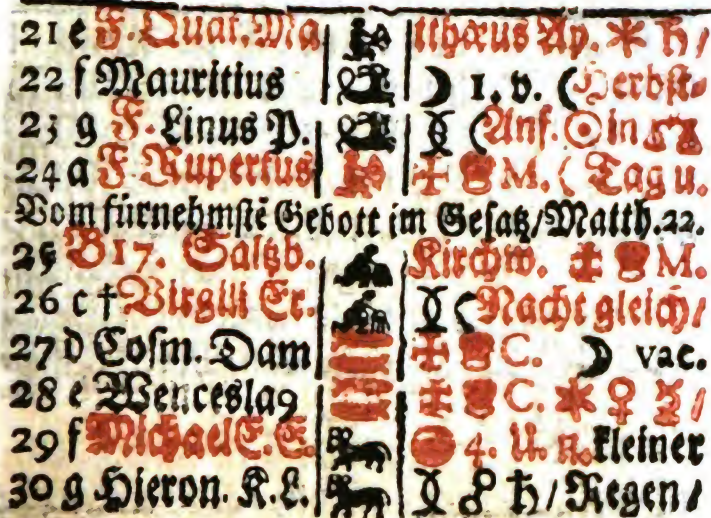 21 e F. Quat. Ma tthæus Ap. ⚹ ♄ /
22 f Mauritius ☽ 1. v. ( Herbst-
23 g F. Linus P. ( Anf. ☉ in ♎
24 a F Rupertus ✠ M. ( Tag u.
Vom fürnehmstē Gebott im Gesatz / Matth. 22.
25 B 17. Saltzb. Kirchw. ✠ M.
26 c † Virgili Er. ( Nacht gleich /
27 d Cosm. Dam ✠ C. ☽ vac.
28 e Wenceslaꝰ ✠ C. ⚹ ♀ ☿ /
29 f Michael E. E. 4. U. n. kleiner
30 g Hieron. K. L. ☍ ♄ / Regen /